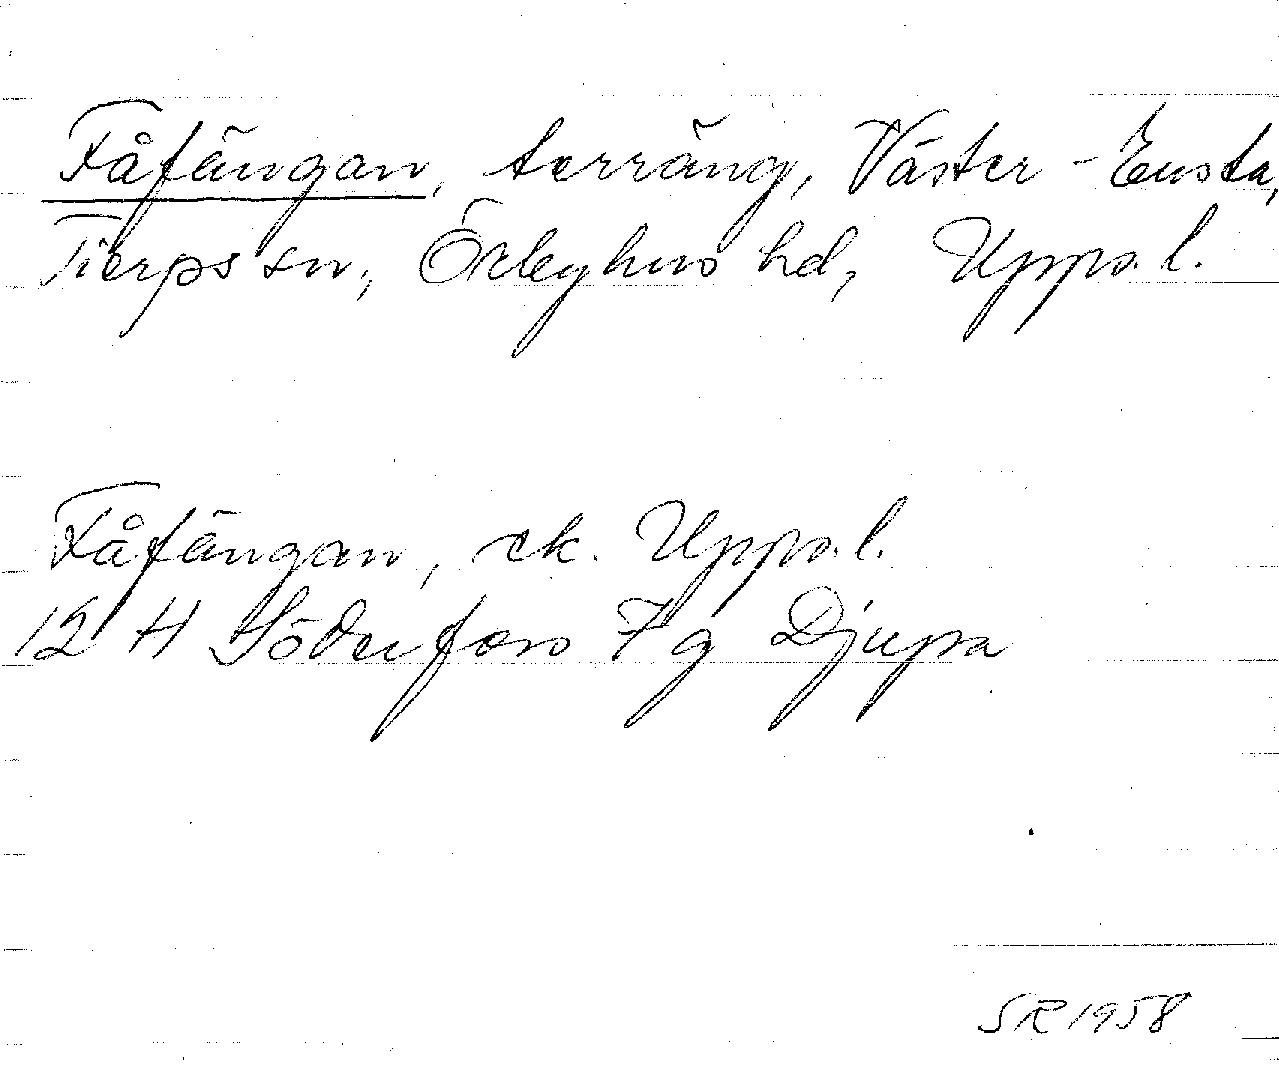 Fåfängan, terräng, Väster-Ensta,
Tierps sn, Örbyhus hd, Upps. l.
Fåfängan, ek. Upps. l.
12 H Söderfors 7 g Djupa
SR 1958